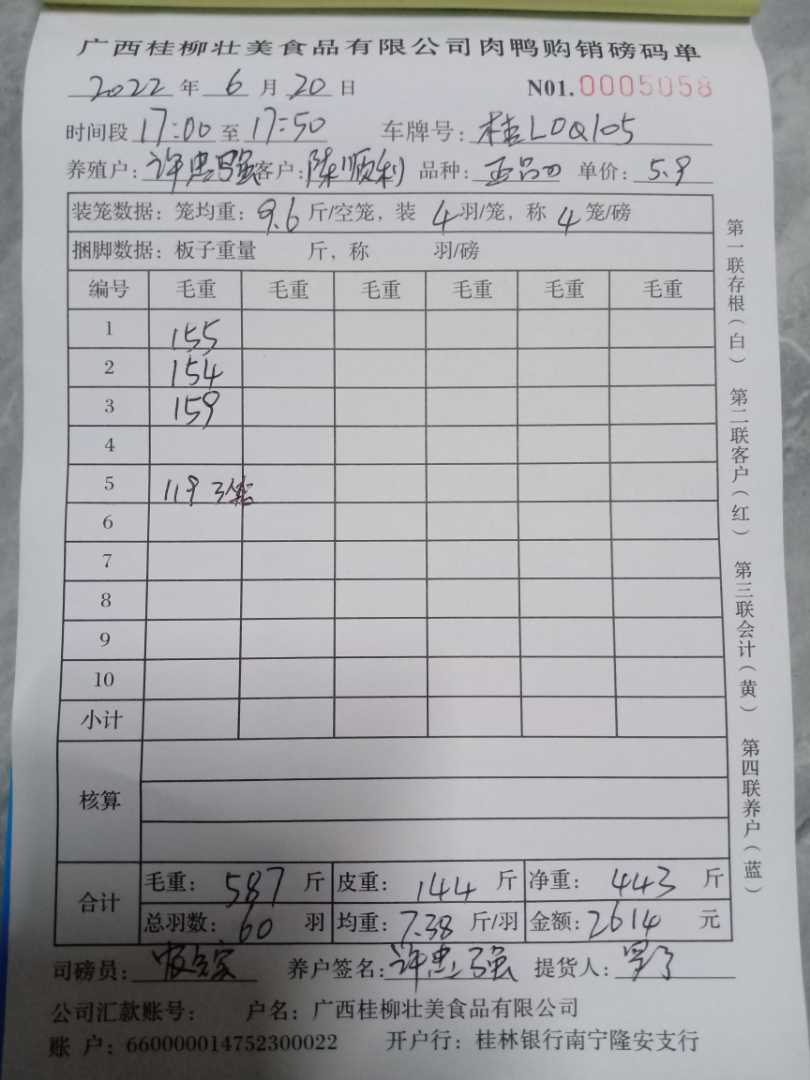 广西桂柳壮美食品有限公司肉鸭购销磅码单
2022年 6 月 20 日 N01.0005058
时间段 17:00 至 17:50 车牌号: 桂L0Q105
养殖户: 许忠强 客户: 陈顺利 品种: 单价: 5.9
装笼数据: 笼均重: 9.6 斤/空笼, 装 4 羽/笼, 称 4 笼/磅
捆脚数据: 板子重量 斤, 称 羽/磅
编号 毛重 毛重 毛重 毛重 毛重 毛重
1 155
2 154
3 159
4
5 119 3笼
6
7
8
9
10
小计
核算
合计 毛重: 587 斤 皮重: 144 斤 净重: 443 斤
总羽数: 60 羽 均重: 7.38 斤/羽 金额: 2614 元
司磅员: 养户签名: 许忠强 提货人:
公司汇款账号: 户名: 广西桂柳壮美食品有限公司
账 户: 660000014752300022 开户行: 桂林银行南宁隆安支行
第一联存根(白) 第二联客户(红) 第三联会计(黄) 第四联养户(蓝)